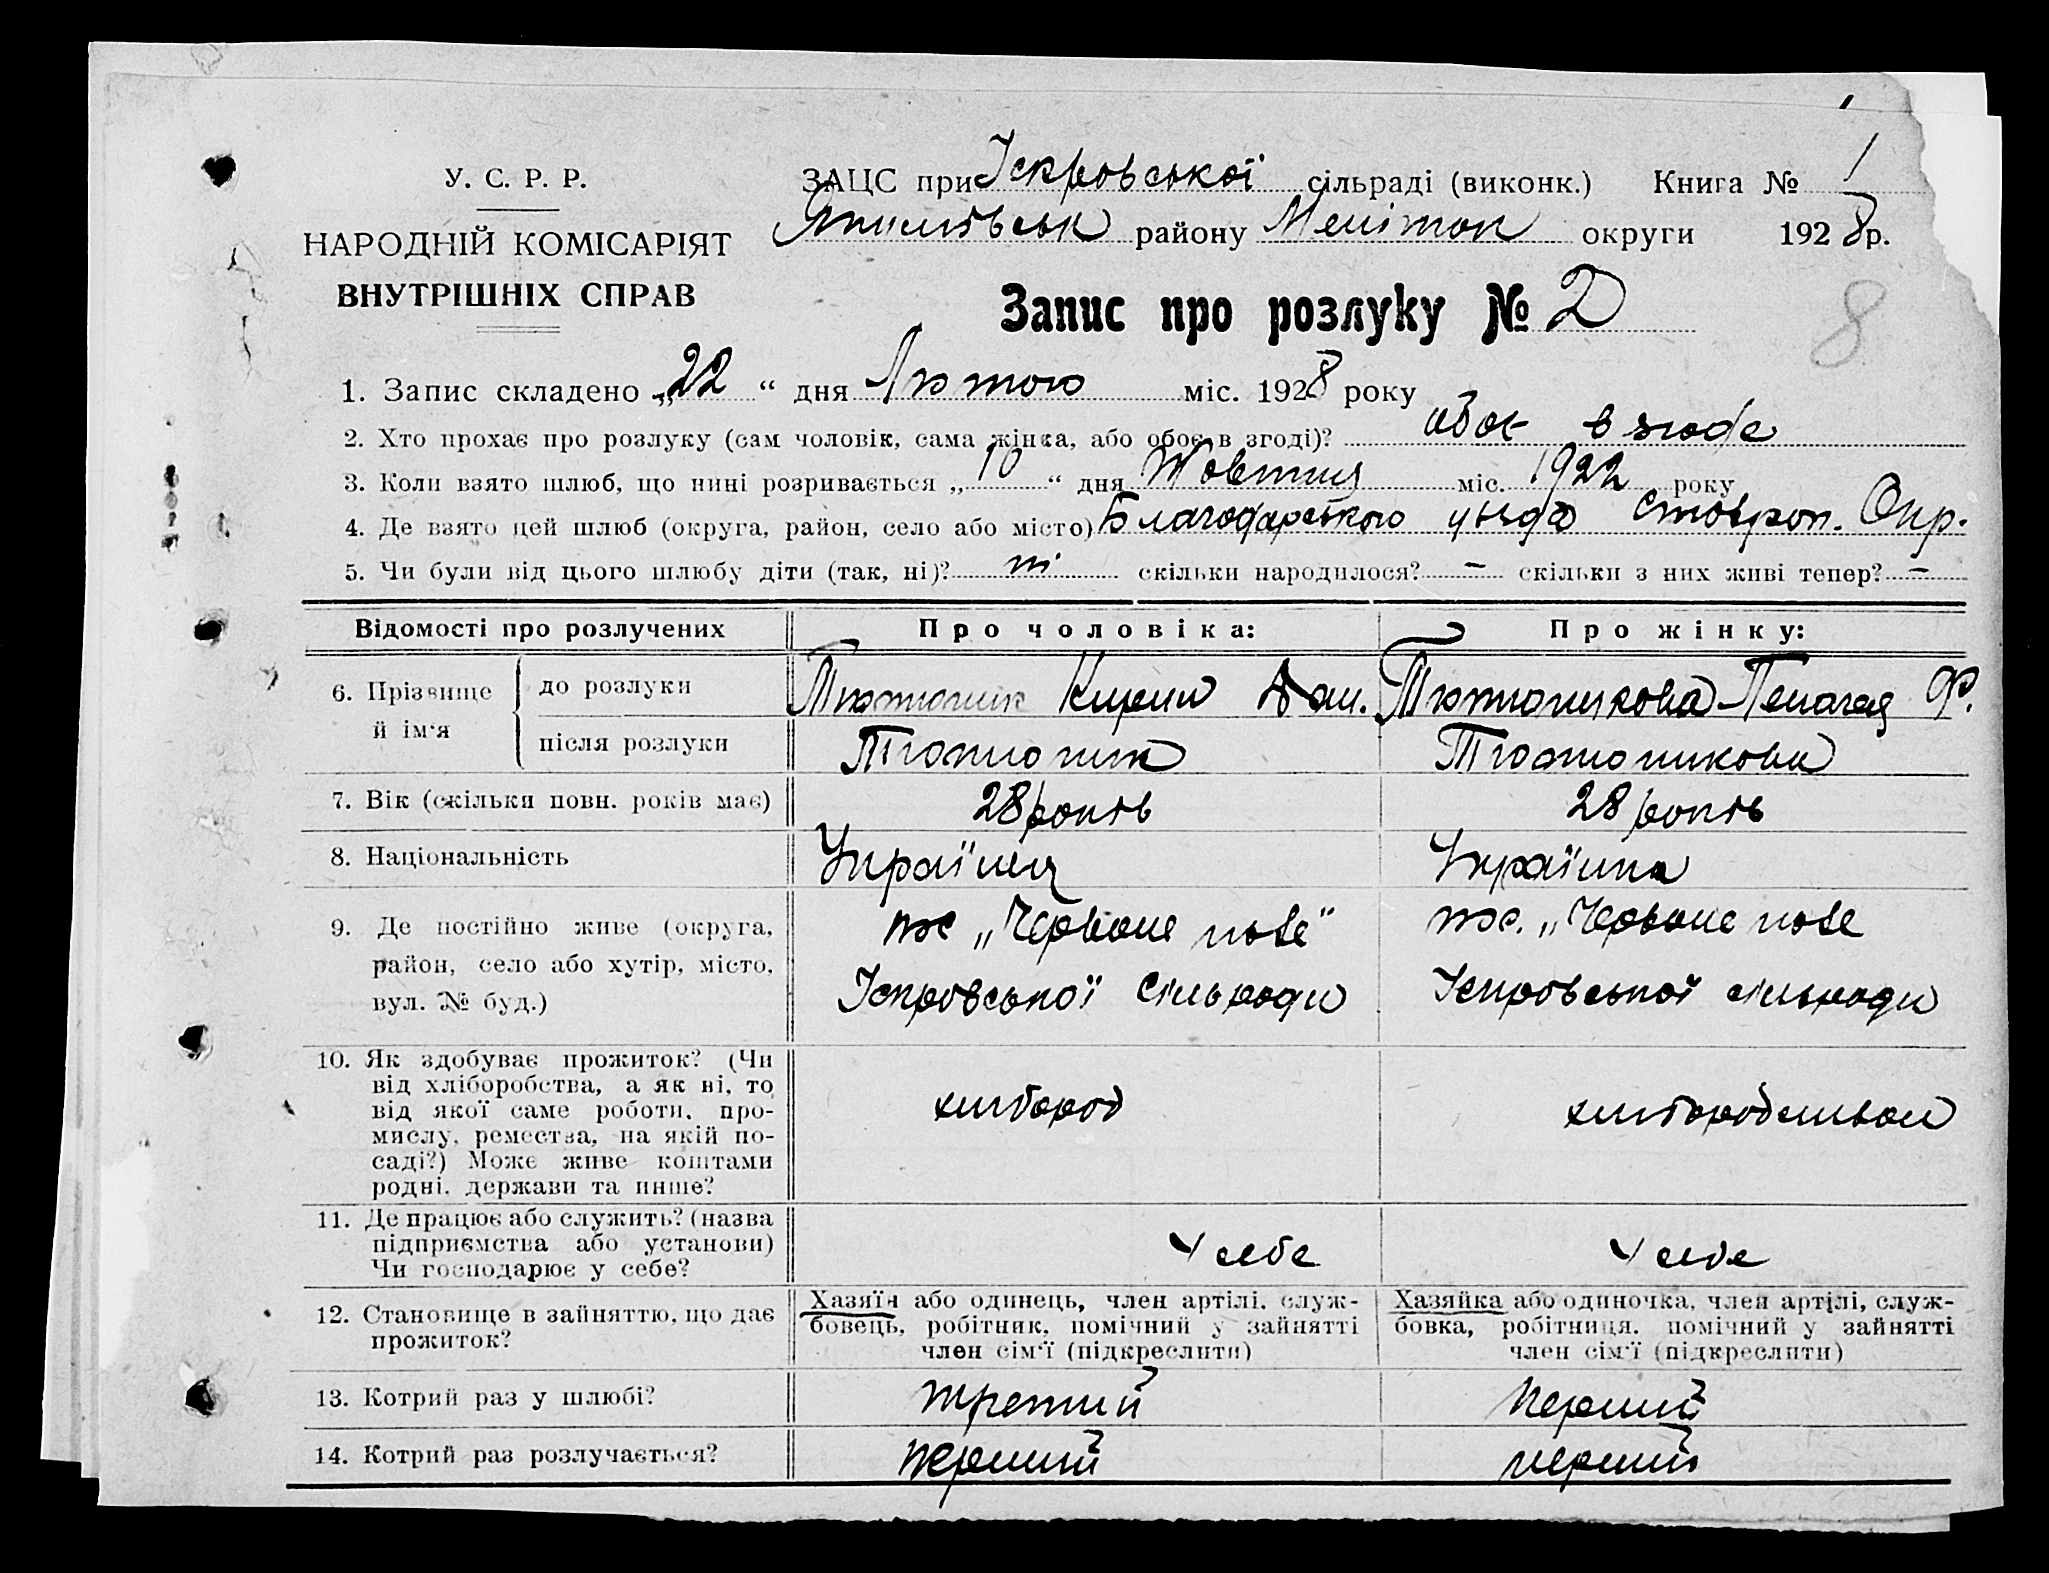 У. С. Р. Р.
НАРОДНІЙ КОМІСАРІЯТ
ВНУТРІШНІХ СПРАВ
ЗАЦС при Іскровської сільраді (виконк.) Книга № 1
Якимівськ району Мелітоп округи 1928 р.
Запис про розлуку № 2
8
1. Запис складено „22“ дня Лютого міс. 1928 року
2. Хто прохає про розлуку (сам чоловік, сама жінка, або обоє в згоді)? обоє в згоде
3. Коли взято шлюб, що нині розривається „10“ дня Жовтня міс. 1922 року
4. Де взято цей шлюб (округа, район, село або місто) Благодарського уезда Ставроп. Окр.
5. Чи були від цього шлюбу діти (так, ні)? ні скільки народилося? – скільки з них живі тепер? –
Відомості про розлучених
Про чоловіка:
Про жінку:
6. Прізвище й ім'я
до розлуки
Тютюник Кирил Дан.
Тютюникова Пелагея Ф.
після розлуки
Тютюник
Тютюникова
7. Вік (скільки повн. років має)
28 років
28 років
8. Національність
Українец
Українка
9. Де постійно живе (округа,
район, село або хутір, місто,
вул. № буд.)
„Червоне поле“
Іскровської Сільради
„Червоне поле
Іскровської сільради
10. Як здобуває прожиток? (Чи
від хліборобства, а як ні, то
від якої саме роботи, про-
мислу, ремества, на якій по-
саді?) Може живе коштами
родні, держави та инше?
хлібороб
хліборобством
11. Де працює або служить? (назва
підприємства або установи)
Чи господарює у себе?
У себе
У себе
12. Становище в зайняттю, що дає
прожиток?
Хазяїн або одинець, член артілі, служ-
бовець, робітник, помічний у зайнятті
член сім'ї (підкреслити)
Хазяйка або одиночка, член артілі, служ-
бовка, робітниця, помічний у зайнятті
член сім'ї (підкреслити)
13. Котрий раз у шлюбі?
третий
перший
14. Котрий раз розлучається?
перший
перший